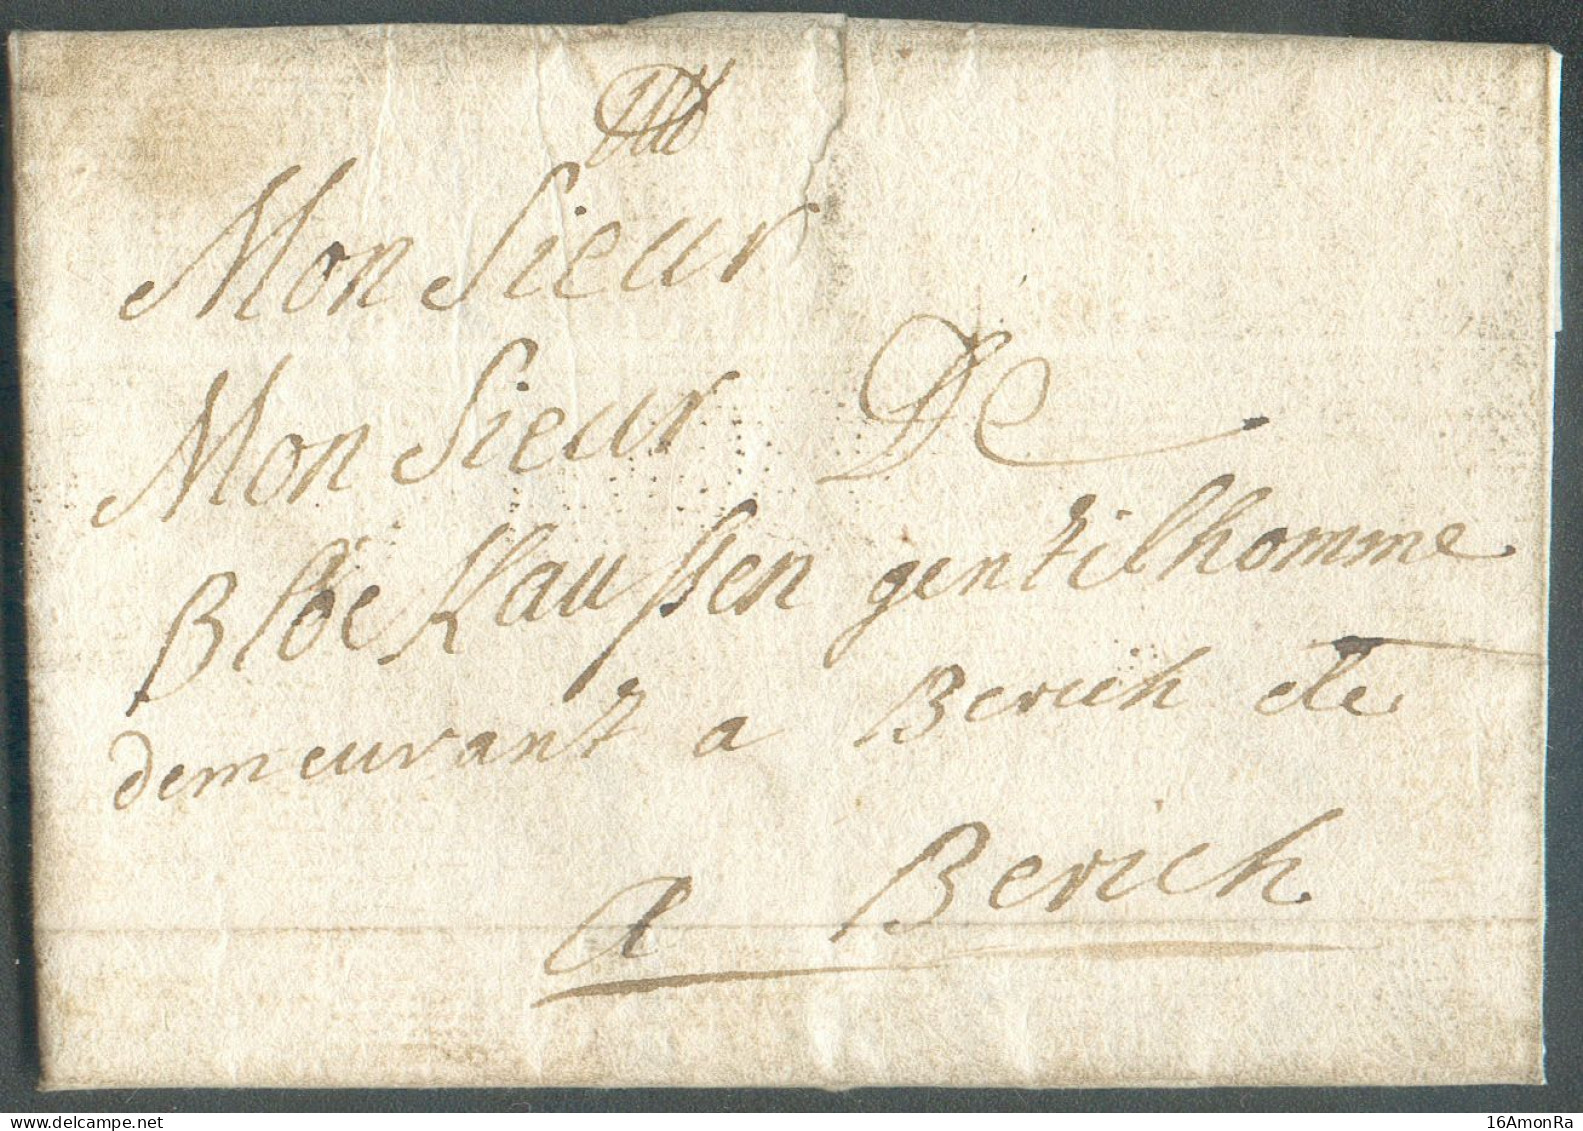 Monsieur
Monsieur De
Bloe Kaussen gentilhomme
demeurant a Berich etc
a Berich
16AmonRa